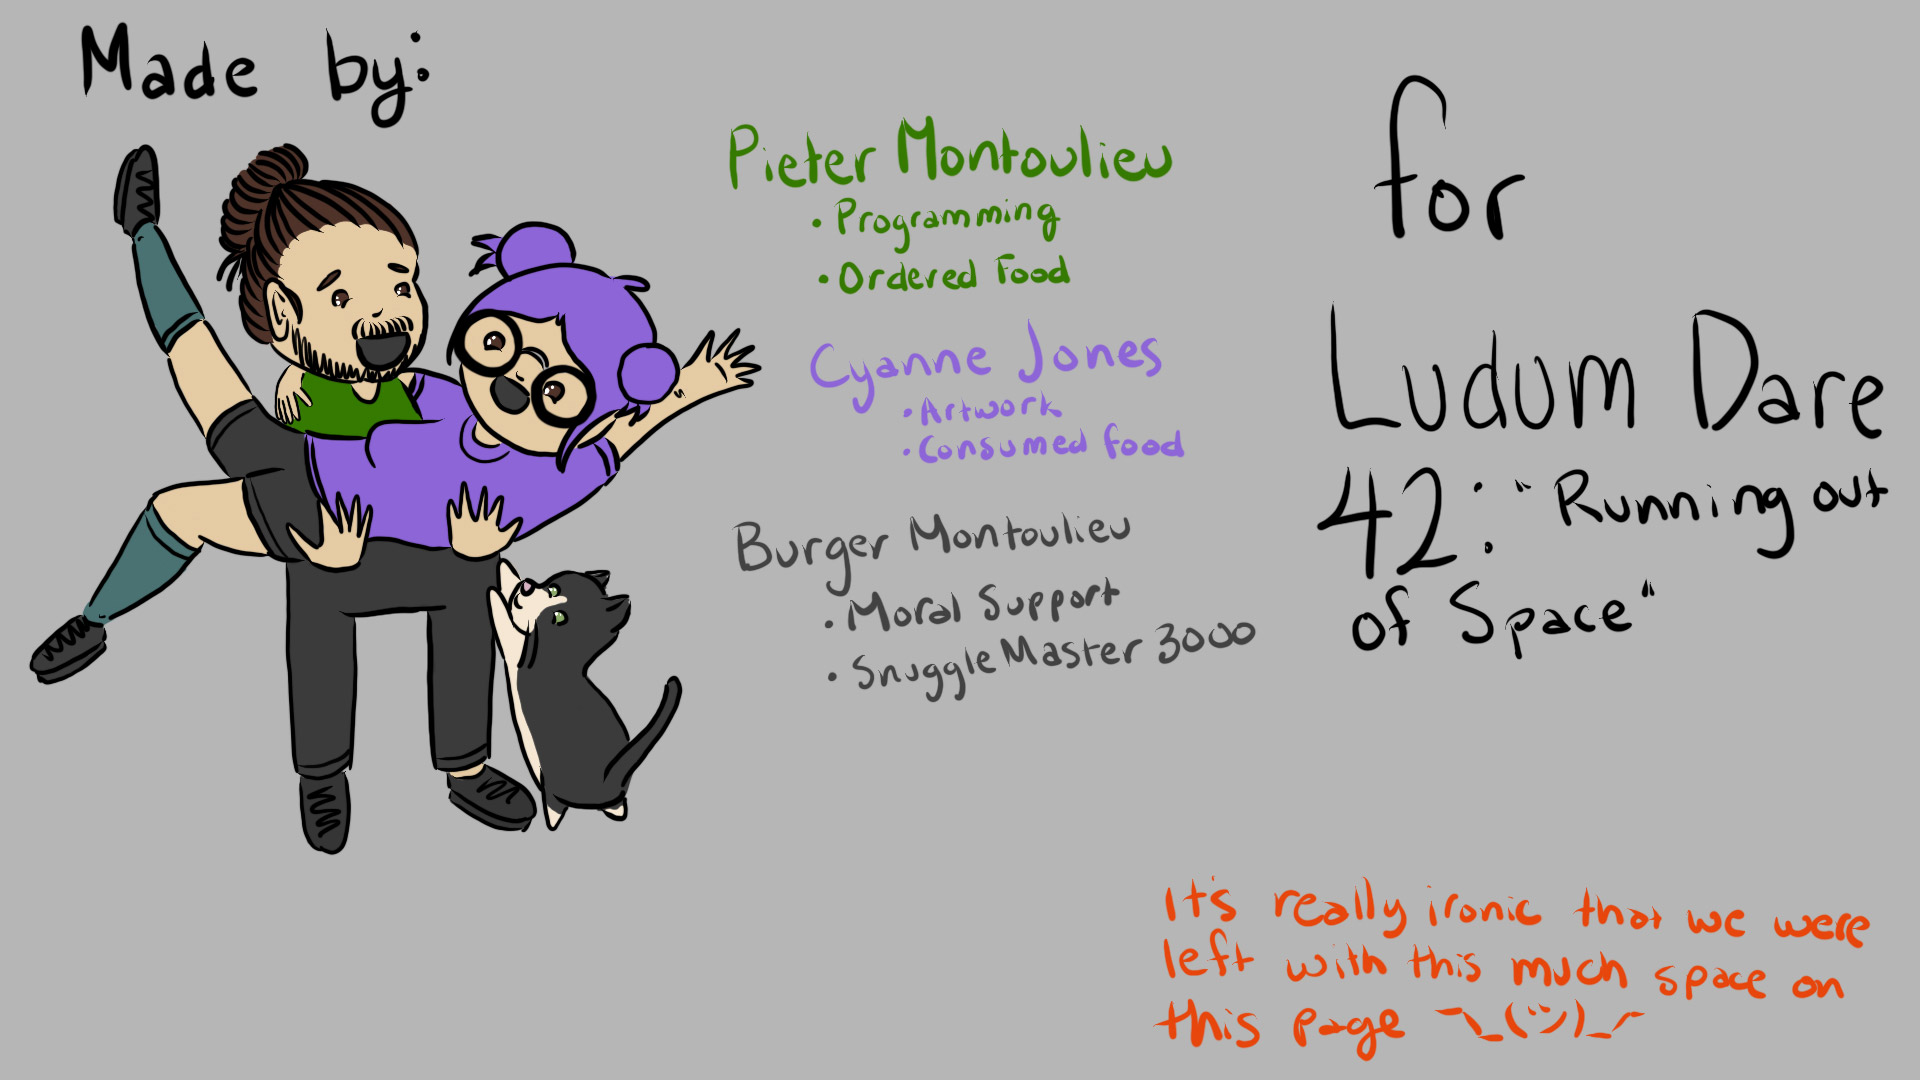 Made by:
Pieter Montoulieu
• Programming
• Ordered Food
Cyanne Jones
• Artwork
• Consumed food
Burger Montoulieu
• Moral Support
• SnuggleMaster 3000
for
Ludum Dare
42: "Running out
of Space"
It's really ironic that we were
left with this much space on
this page ¯\_(ツ)_/¯